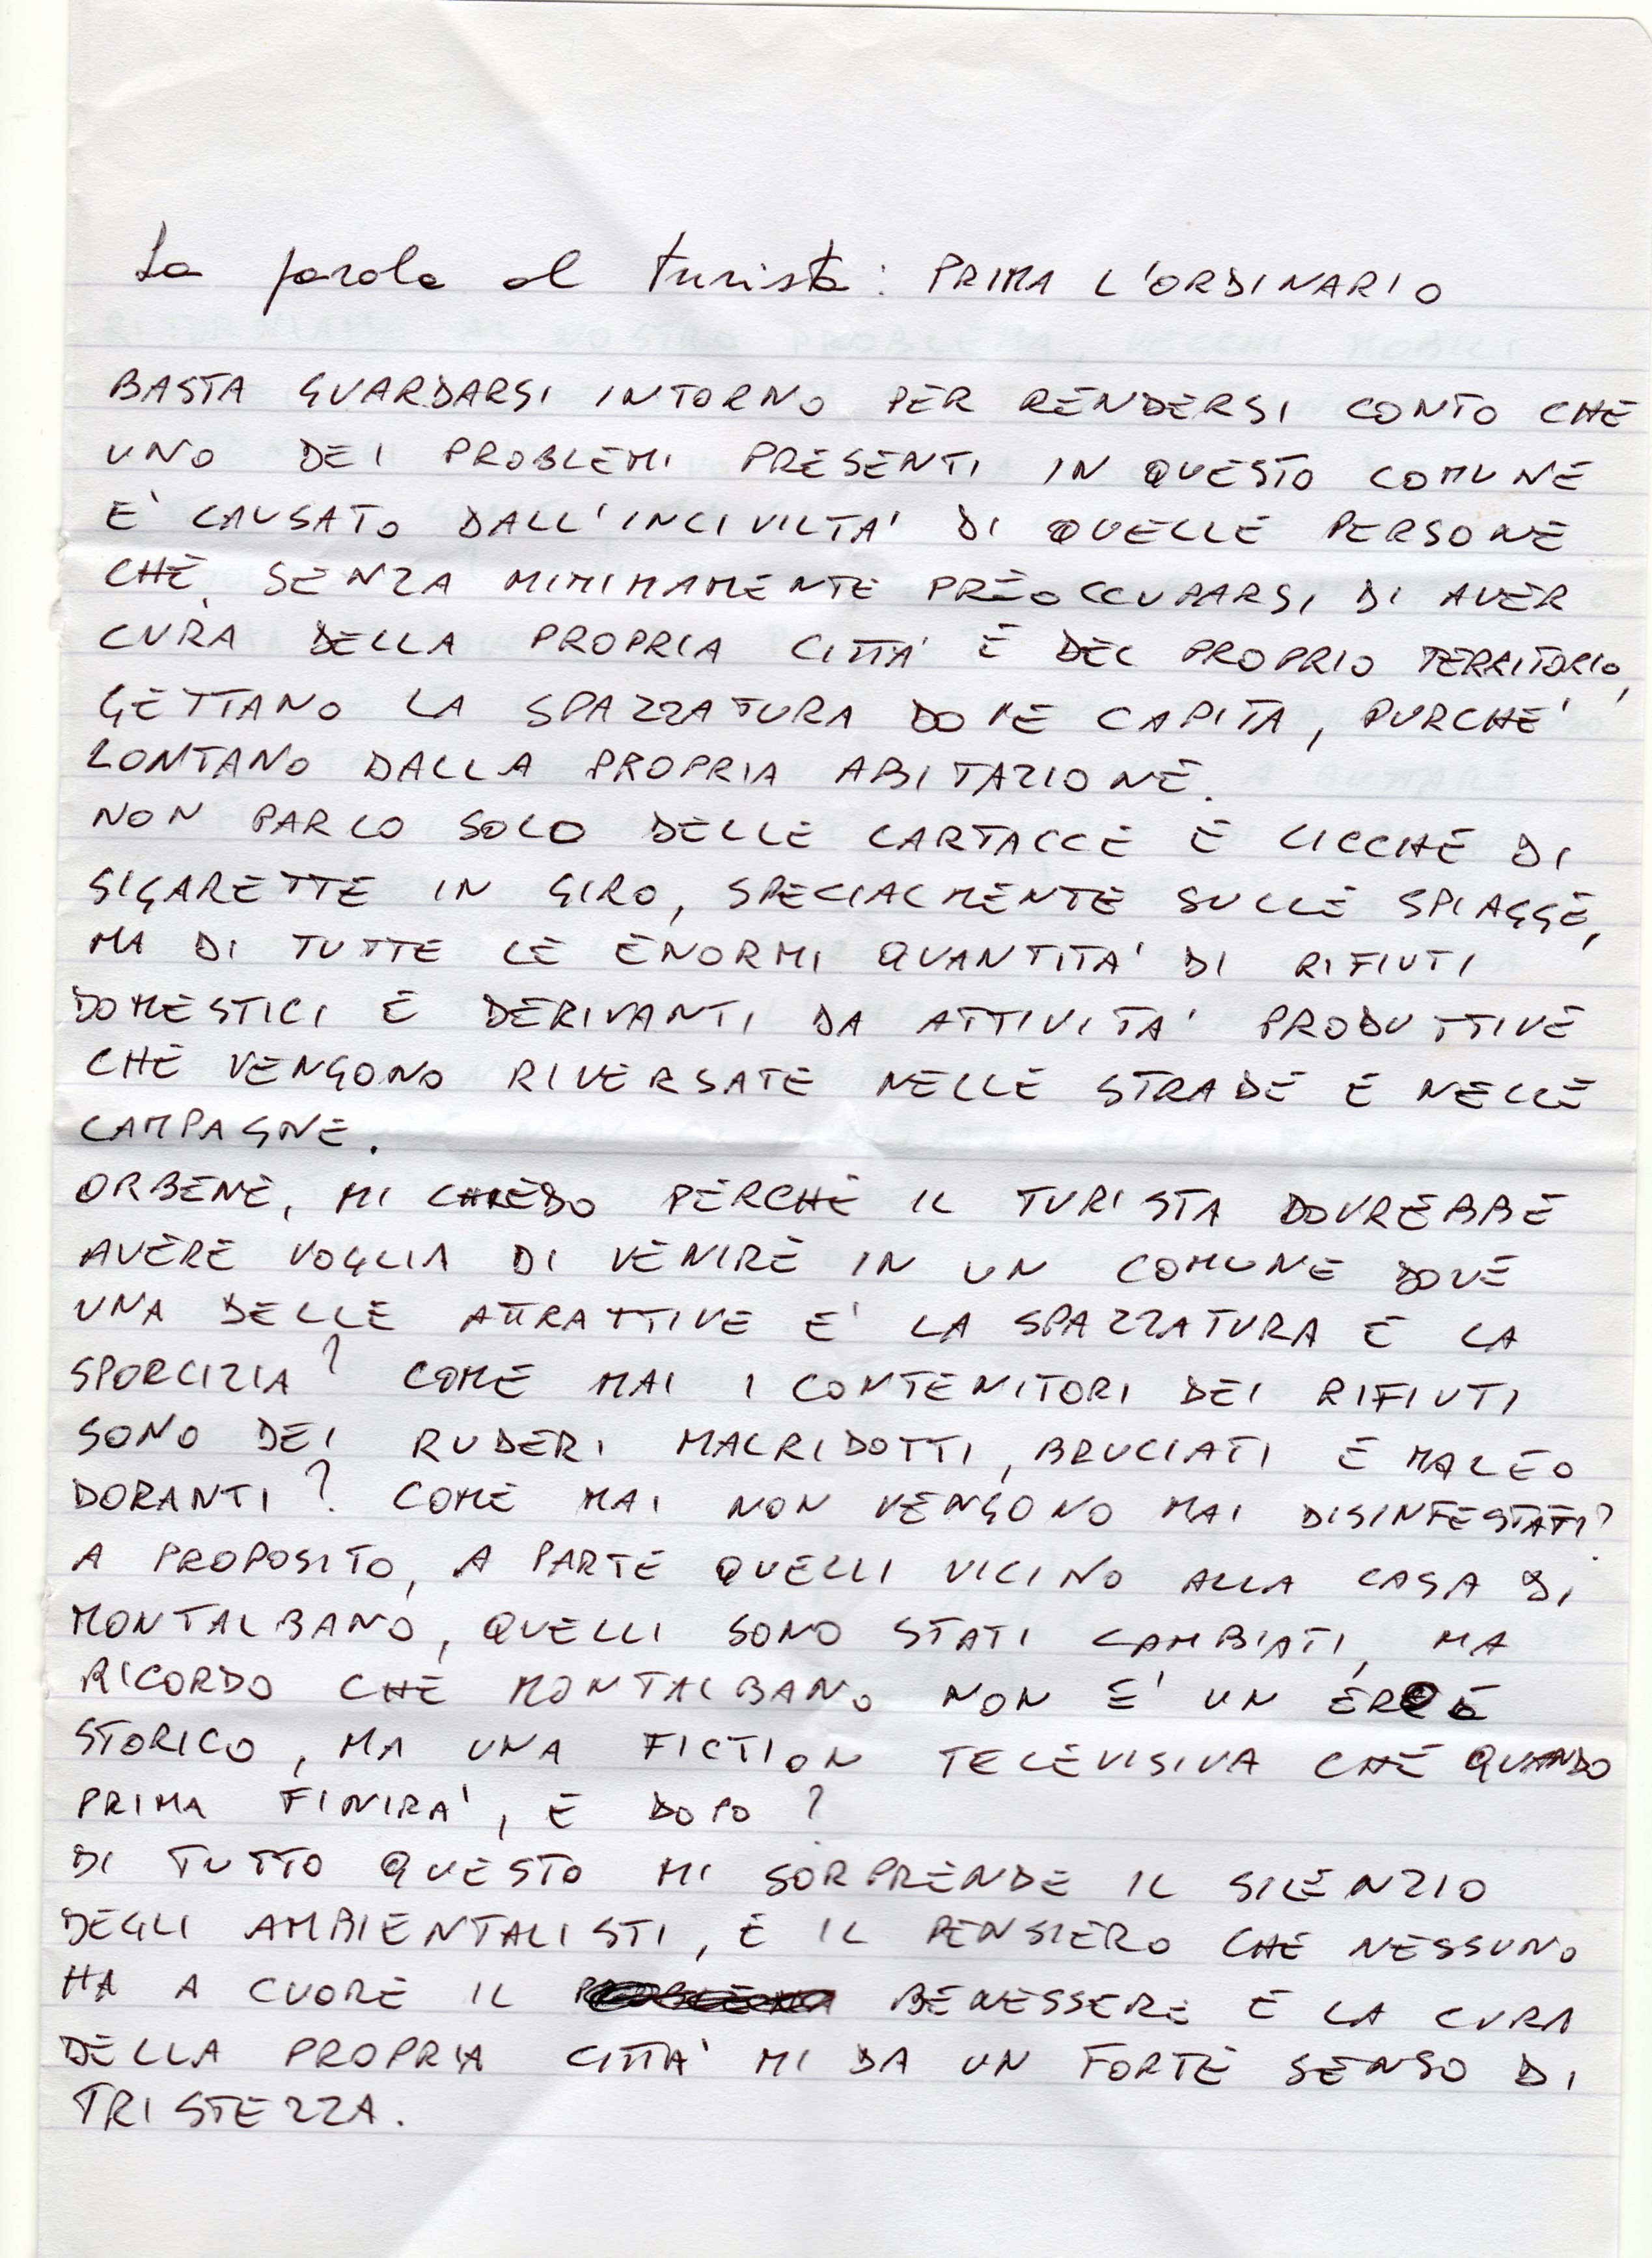 La parola al turista: PRIMA L'ORDINARIO
BASTA GUARDARSI INTORNO PER RENDERSI CONTO CHE
UNO DEI PROBLEMI PRESENTI IN QUESTO COMUNE
E' CAUSATO DALL'INCIVILTA' DI QUELLE PERSONE
CHE, SENZA MINIMAMENTE PREOCCUPARSI DI AVER
CURA DELLA PROPRIA CITTA' E DEL PROPRIO TERRITORIO,
GETTANO LA SPAZZATURA DOVE CAPITA, PURCHE'
LONTANO DALLA PROPRIA ABITAZIONE.
NON PARLO SOLO DELLE CARTACCE E CICCHE DI
SIGARETTE IN GIRO, SPECIALMENTE SULLE SPIAGGE,
MA DI TUTTE LE ENORMI QUANTITA' DI RIFIUTI
DOMESTICI E DERIVANTI DA ATTIVITA' PRODUTTIVE
CHE VENGONO RIVERSATE NELLE STRADE E NELLE
CAMPAGNE.
ORBENE, MI CHIEDO PERCHE IL TURISTA DOVREBBE
AVERE VOGLIA DI VENIRE IN UN COMUNE DOVE
UNA DELLE ATTRATTIVE E' LA SPAZZATURA E LA
SPORCIZIA? COME MAI I CONTENITORI DEI RIFIUTI
SONO DEI RUDERI MALRIDOTTI, BRUCIATI E MALEO
DORANTI? COME MAI NON VENGONO MAI DISINFESTATI?
A PROPOSITO, A PARTE QUELLI VICINO ALLA CASA DI
MONTALBANO, QUELLI SONO STATI CAMBIATI, MA
RICORDO CHE MONTALBANO NON E' UN EROE
STORICO, MA UNA FICTION TELEVISIVA CHE QUANDO
PRIMA FINIRA', E DOPO?
DI TUTTO QUESTO MI SORPRENDE IL SILENZIO
DEGLI AMBIENTALISTI, E IL PENSIERO CHE NESSUNO
HA A CUORE IL BENESSERE E LA CURA
DELLA PROPRIA CITTA' MI DA UN FORTE SENSO DI
TRISTEZZA.